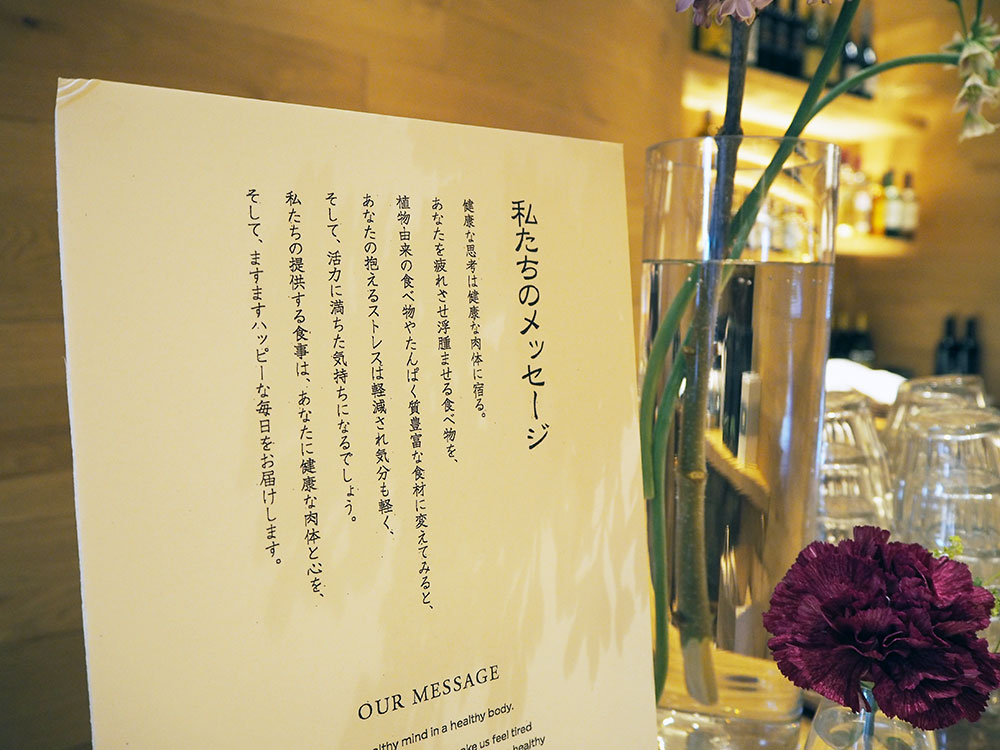 私たちのメッセージ
健康な思考は健康な肉体に宿る。
あなたを疲れさせ浮腫ませる食べ物を、
植物由来の食べ物やたんぱく質豊富な食材に変えてみると、
あなたの抱えるストレスは軽減され気分も軽く、
そして、活力に満ちた気持ちになるでしょう。
私たちの提供する食事は、あなたに健康な肉体と心を、
そして、ますますハッピーな毎日をお届けします。
OUR MESSAGE
mind in a healthy body.
us feel tired
healthy